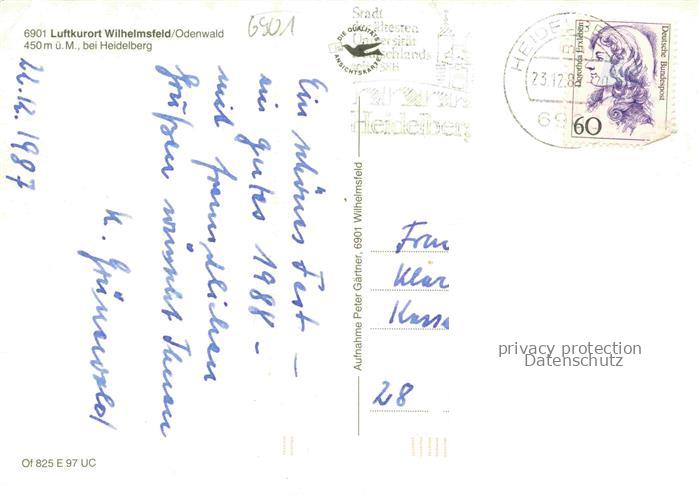 6901 Luftkurort Wilhelmsfeld/Odenwald
450 m ü.M., bei Heidelberg
6901
22.12.1987
Ein schönes Fest –
ein gutes 1988 –
und freundlichen
Grüßen wünscht Ihnen
K. Grünewald
Of 825 E 97 UC
Aufnahme Peter Gärtner, 6901 Wilhelmsfeld
DIE QUALITÄTS
ANSICHTSKARTE
Stadt
der ältesten
Universität
Deutschlands
Heidelberg
HEIDEL
23.12.8
69
Deutsche Bundespost
Dorothea Erxleben
60
Frau
Klar
Kass
28
privacy protection
Datenschutz